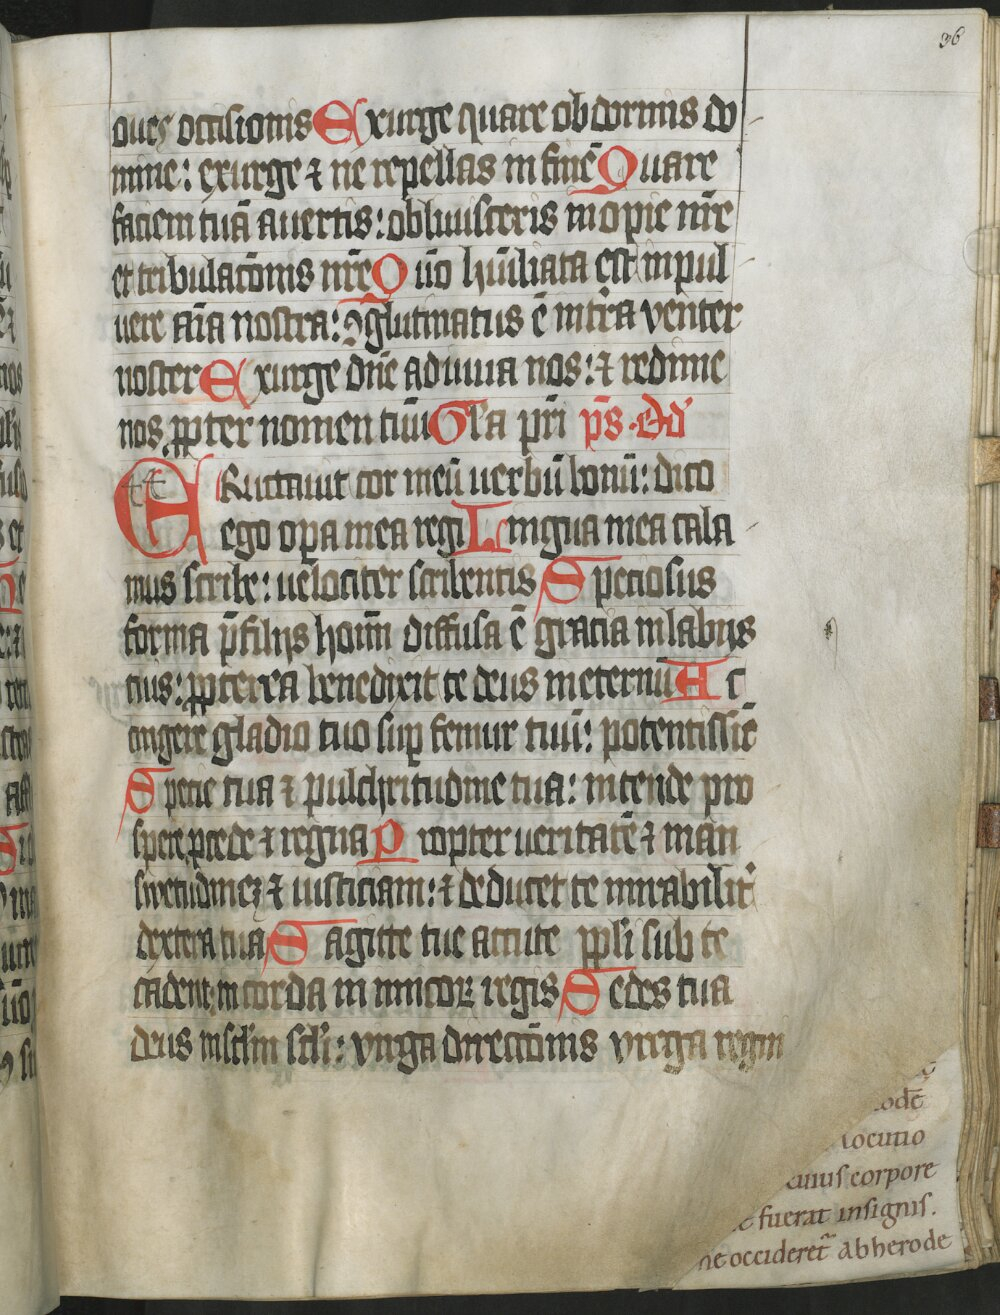 36
oues occisionis Exurge quare obdormis do
mine: exurge ⁊ ne repellas in finē Quare
faciem tuā auertis: obliuisceris inopie nr̄e
et tribulatōnis nr̄e Q ūo hūiliata est in pul
uere aīa nostra: ꝯglutinatus ē in tr̄ra venter
noster Exurge dn̄e adiuua nos: ⁊ redime
nos ꝓpter nomen tuū Gl'a pr̄i p̄s. Dd'
ERuctauit cor meū uerbū bonū: dico
ego oꝑa mea regi Lingua mea cala
mus scribe: uelociter scribentis Speciosus
forma p̄ filijs hoīm diffusa ē gracia in labijs
tuis: ꝓpterea benedixit te deus in eternū Ac
cingere gladio tuo suꝑ femur tuū: potentissīe
Specie tua ⁊ pulchritudine tua: intende pro
spere ꝓcede ⁊ regna Propter ueritatē ⁊ man
swetudinez ⁊ iusticiam: ⁊ deducet te mirabilit'
dextera tua Sagitte tue acute ꝓpli sub te
cadent, in corda inimicoꝝ regis Sedes tua
deus in sclm̄ scl'i: virga directōnis virga regni
ocutio
cuius corpore
fuerat insignis.
ne occideret' ab herode